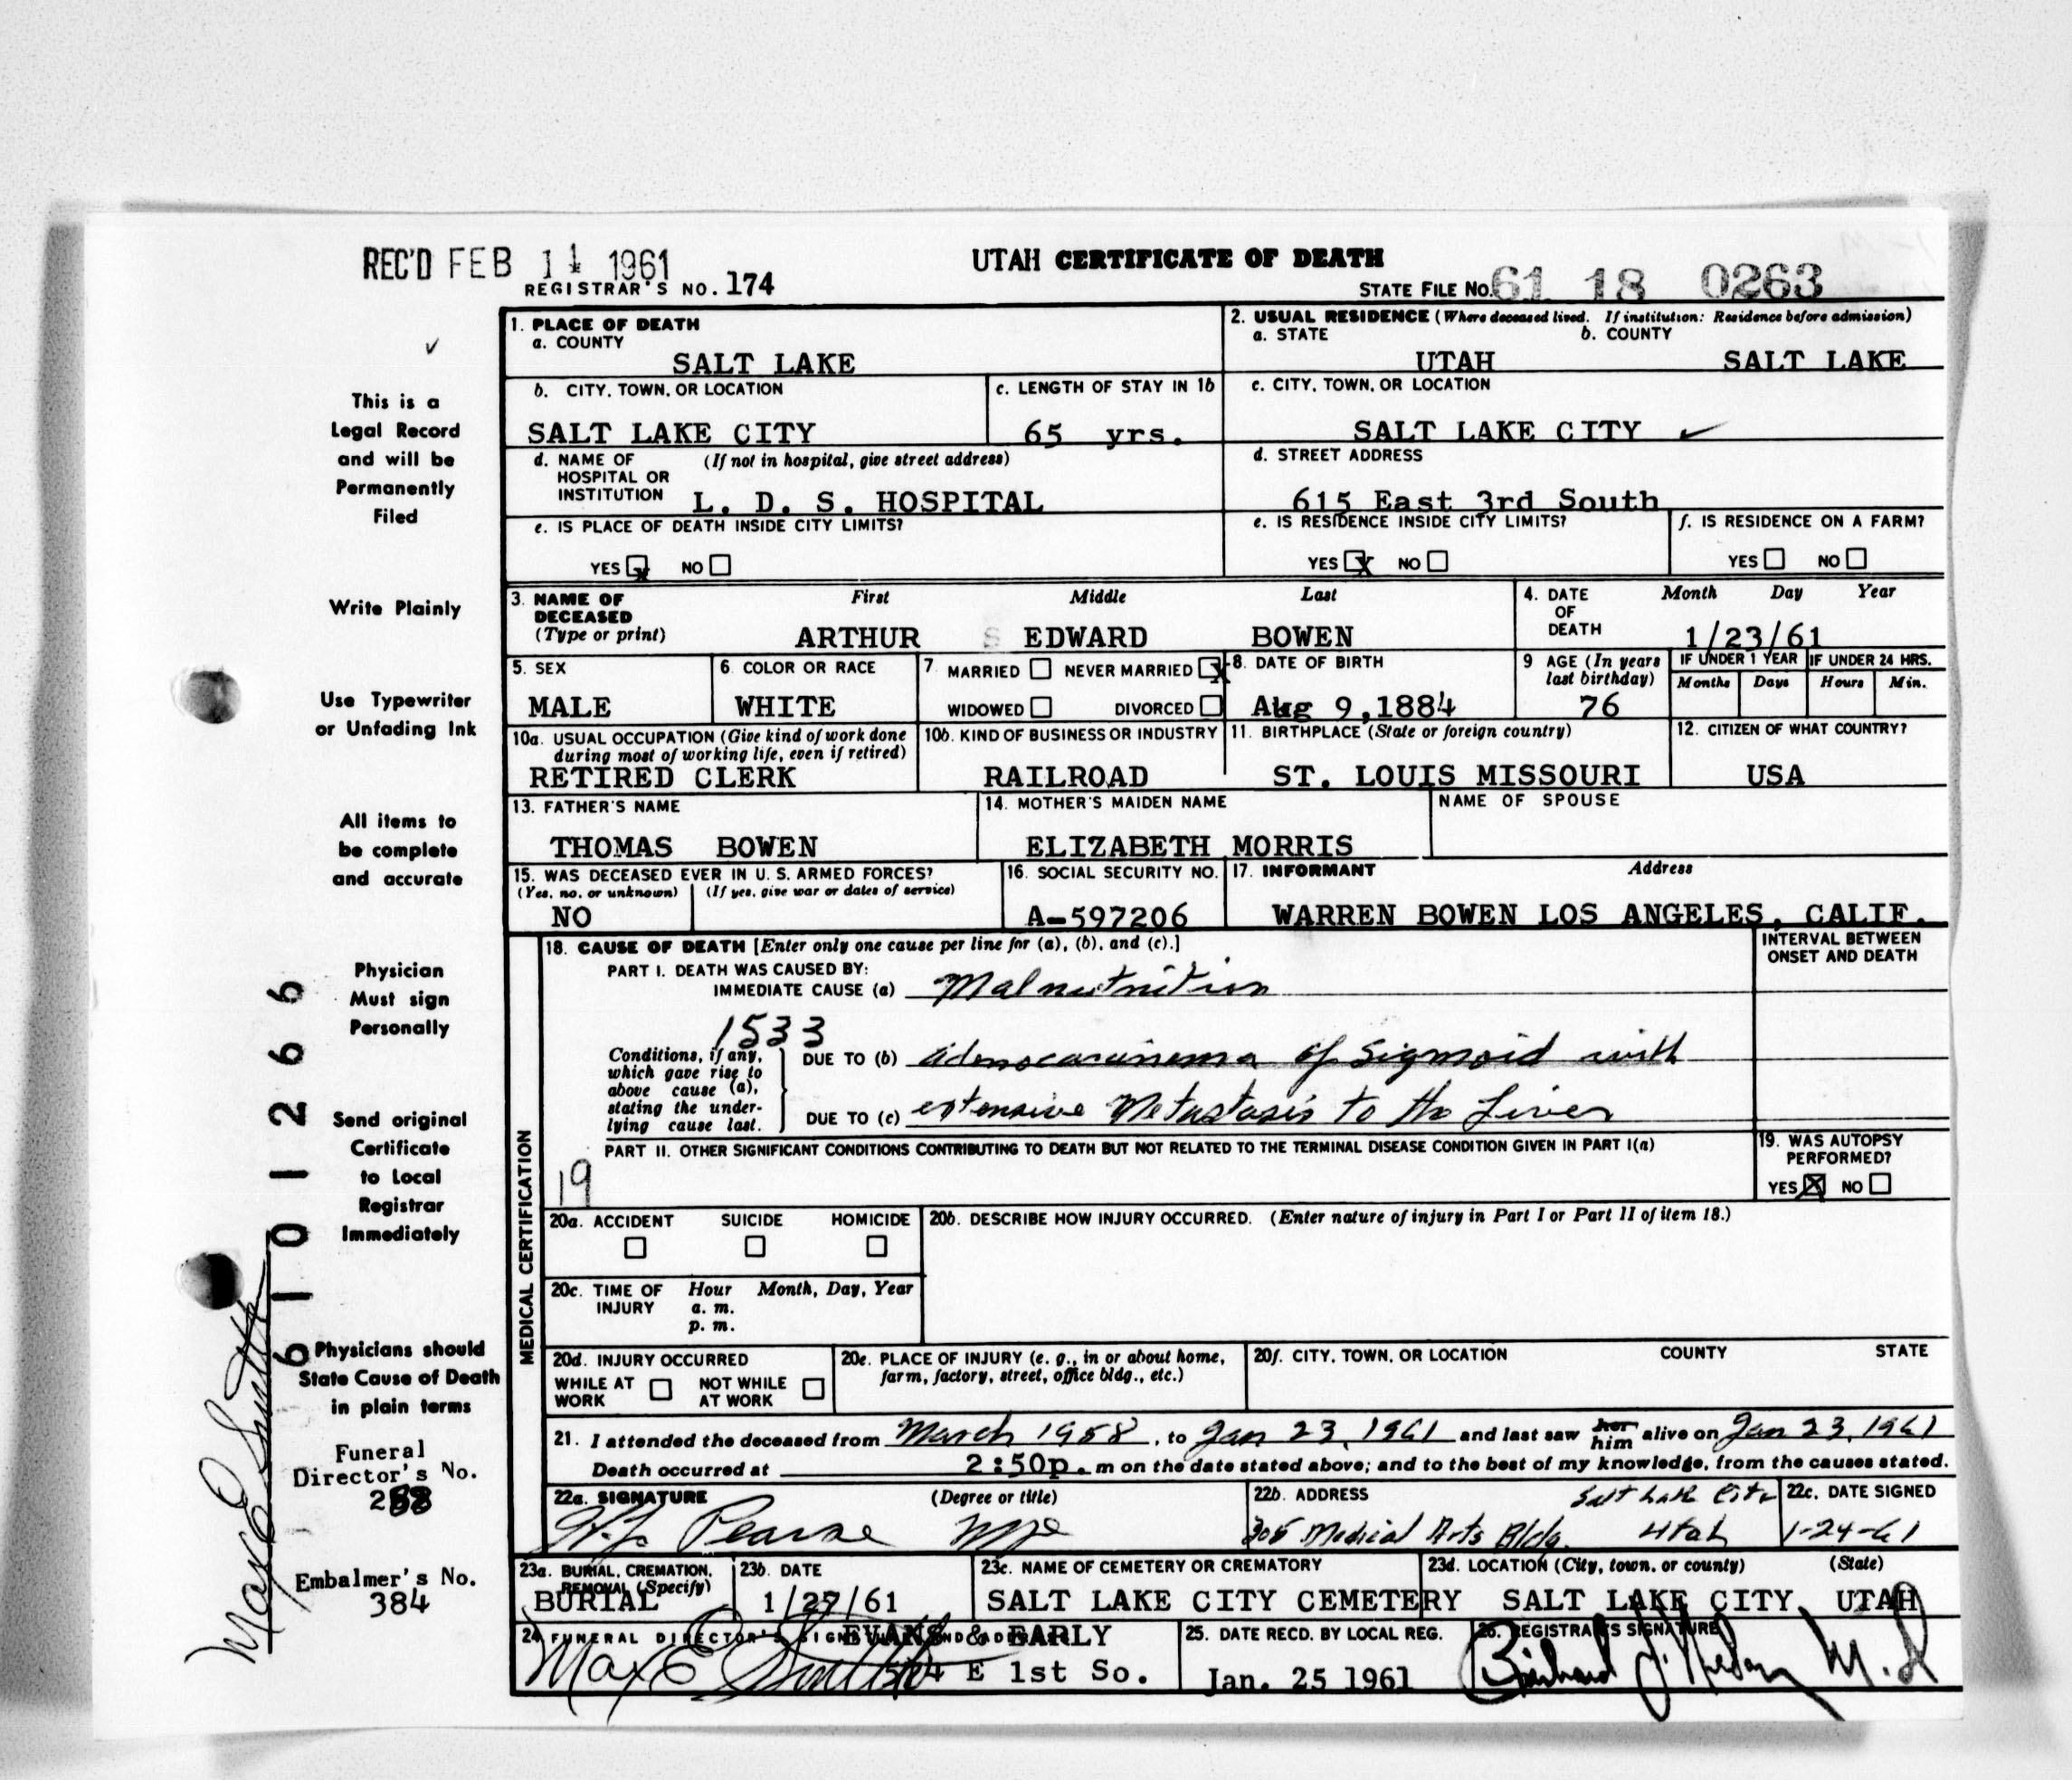 REC'D FEB 1 1961
UTAH CERTIFICATE OF DEATH
REGISTRAR'S NO. 174
STATE FILE NO. 61 18 0263
1. PLACE OF DEATH
a. COUNTY
SALT LAKE
2. USUAL RESIDENCE (Where deceased lived. If institution: Residence before admission)
a. STATE b. COUNTY
UTAH SALT LAKE
b. CITY, TOWN, OR LOCATION
SALT LAKE CITY
c. LENGTH OF STAY IN 1b
65 yrs.
c. CITY, TOWN, OR LOCATION
SALT LAKE CITY
d. NAME OF (If not in hospital, give street address)
HOSPITAL OR
INSTITUTION L. D. S. HOSPITAL
d. STREET ADDRESS
615 East 3rd South
e. IS PLACE OF DEATH INSIDE CITY LIMITS?
YES X NO
e. IS RESIDENCE INSIDE CITY LIMITS?
YES X NO
f. IS RESIDENCE ON A FARM?
YES NO
3. NAME OF First Middle Last
DECEASED
(Type or print) ARTHUR S EDWARD BOWEN
4. DATE Month Day Year
OF
DEATH 1/23/61
5. SEX
MALE
6. COLOR OR RACE
WHITE
7. MARRIED NEVER MARRIED X
WIDOWED DIVORCED
8. DATE OF BIRTH
Aug 9,1884
9 AGE (In years
last birthday)
76
IF UNDER 1 YEAR IF UNDER 24 HRS.
Months Days Hours Min.
10a. USUAL OCCUPATION (Give kind of work done
during most of working life, even if retired)
RETIRED CLERK
10b. KIND OF BUSINESS OR INDUSTRY
RAILROAD
11. BIRTHPLACE (State or foreign country)
ST. LOUIS MISSOURI
12. CITIZEN OF WHAT COUNTRY?
USA
13. FATHER'S NAME
THOMAS BOWEN
14. MOTHER'S MAIDEN NAME
ELIZABETH MORRIS
NAME OF SPOUSE
15. WAS DECEASED EVER IN U. S. ARMED FORCES?
(Yes, no, or unknown) (If yes, give war or dates of service)
NO
16. SOCIAL SECURITY NO.
A-597206
17. INFORMANT Address
WARREN BOWEN LOS ANGELES, CALIF.
MEDICAL CERTIFICATION
18. CAUSE OF DEATH [Enter only one cause per line for (a), (b), and (c).]
INTERVAL BETWEEN
ONSET AND DEATH
PART I. DEATH WAS CAUSED BY:
IMMEDIATE CAUSE (a) Malnutrition
1533
Conditions, if any,
which gave rise to
above cause (a),
stating the under-
lying cause last.
DUE TO (b) Adenocarcinoma of Sigmoid with
DUE TO (c) extensive Metastasis to the Liver
PART II. OTHER SIGNIFICANT CONDITIONS CONTRIBUTING TO DEATH BUT NOT RELATED TO THE TERMINAL DISEASE CONDITION GIVEN IN PART I(a)
19
19. WAS AUTOPSY
PERFORMED?
YES X NO
20a. ACCIDENT SUICIDE HOMICIDE
20b. DESCRIBE HOW INJURY OCCURRED. (Enter nature of injury in Part I or Part II of item 18.)
20c. TIME OF Hour Month, Day, Year
INJURY a. m.
p. m.
20d. INJURY OCCURRED
WHILE AT NOT WHILE
WORK AT WORK
20e. PLACE OF INJURY (e. g., in or about home,
farm, factory, street, office bldg., etc.)
20f. CITY, TOWN, OR LOCATION COUNTY STATE
21. I attended the deceased from March 1958, to Jan 23, 1961 and last saw her him alive on Jan 23, 1961
Death occurred at 2:50p. m on the date stated above; and to the best of my knowledge, from the causes stated.
22a. SIGNATURE (Degree or title)
Pearse MD
22b. ADDRESS Salt Lake City
305 Medical Arts Bldg. Utah
22c. DATE SIGNED
1-24-61
23a. BURIAL, CREMATION,
REMOVAL (Specify)
BURIAL
23b. DATE
1/27/61
23c. NAME OF CEMETERY OR CREMATORY
SALT LAKE CITY CEMETERY
23d. LOCATION (City, town, or county) (State)
SALT LAKE CITY, UTAH
24 FUNERAL DIRECTOR'S SIGNATURE AND ADDRESS
EVANS & EARLY
Max E Smith 574 E 1st So.
25. DATE RECD. BY LOCAL REG.
Jan. 25 1961
26. REGISTRAR'S SIGNATURE
M.D.
This is a
Legal Record
and will be
Permanently
Filed
Write Plainly
Use Typewriter
or Unfading Ink
All items to
be complete
and accurate
Physician
Must sign
Personally
Send original
Certificate
to Local
Registrar
Immediately
Physicians should
State Cause of Death
in plain terms
Funeral
Director's No.
Embalmer's No.
384
61101266
Max E Smith